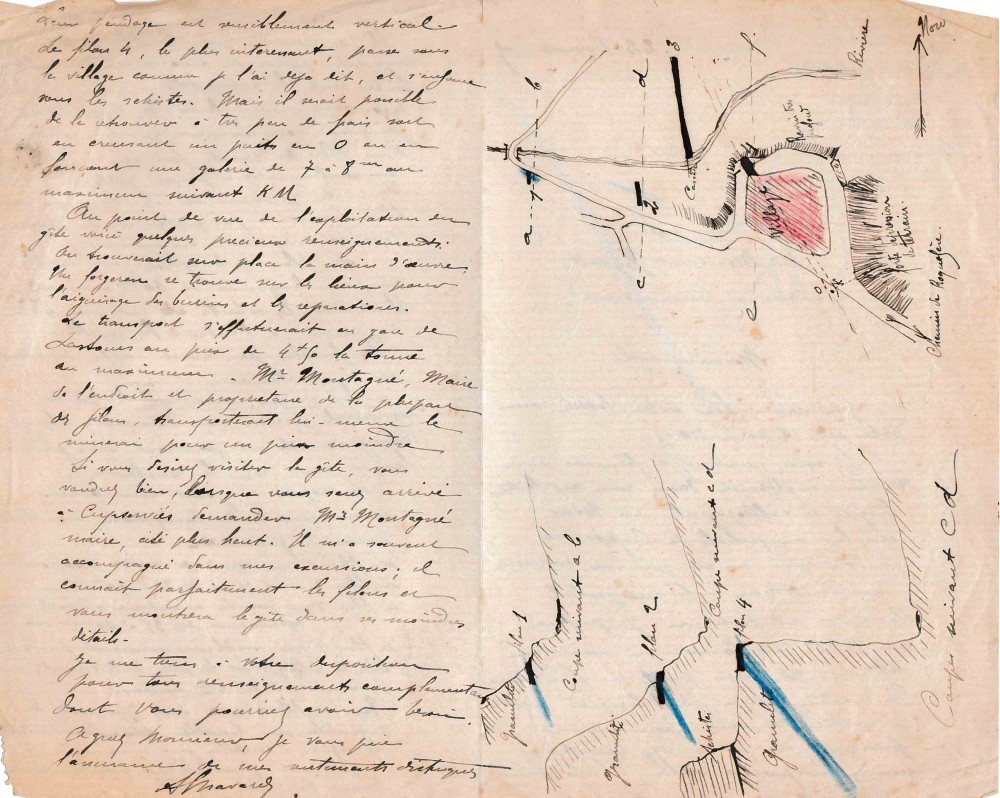 pendage est sensiblement vertical.
Le filon 4, le plus interessant, passe sous
le village comme je l'ai deja dit, et s'enfonce
sous les schistes. Mais il serait possible
de le retrouver à tres peu de frais soit
en creusant un puits en O ou en
forçant une galerie de 7 à 8m au
maximum suivant KM
Au point de vue de l'exploitation du
gîte voici quelques precieux renseignements.
On trouverait sur place la main d'œuvre
Un forgeron se trouve sur les lieux pour
l'aiguisage des burins et les reparations.
Le transport s'effectuerait en gare de
Lastours au prix de 4f50 la tonne
au maximum. Mr Montagné, Maire
de l'endroit et proprietaire de la plupart
des filons, transporterait lui-meme le
minerai pour un prix moindre
Si vous desirez visiter le gîte, vous
voudrez bien, lorsque vous serez arrivé
à Cupservies demander Mr Montagné
maire, cité plus haut. Il m'a souvent
accompagné dans mes excursions; il
connait parfaitement les filons et
vous montrera le gîte dans ses moindres
details.
Je me tiens à votre disposition
pour tous renseignements complementaires
dont vous pourriez avoir besoin.
Agréez Monsieur, je vous prie
l'assurance de mes sentiments distingués
Nord
Riviere
a b
c d
e f
1
2
3
4
Village
O
forte depression
de terrain.
Chemin de Roquefère.
filon 1
Granulite
Coupe suivant a b
filon 2
granulite
Coupe suivant c d
filon 4
Schistes
Granulite
Coupes suivant C d